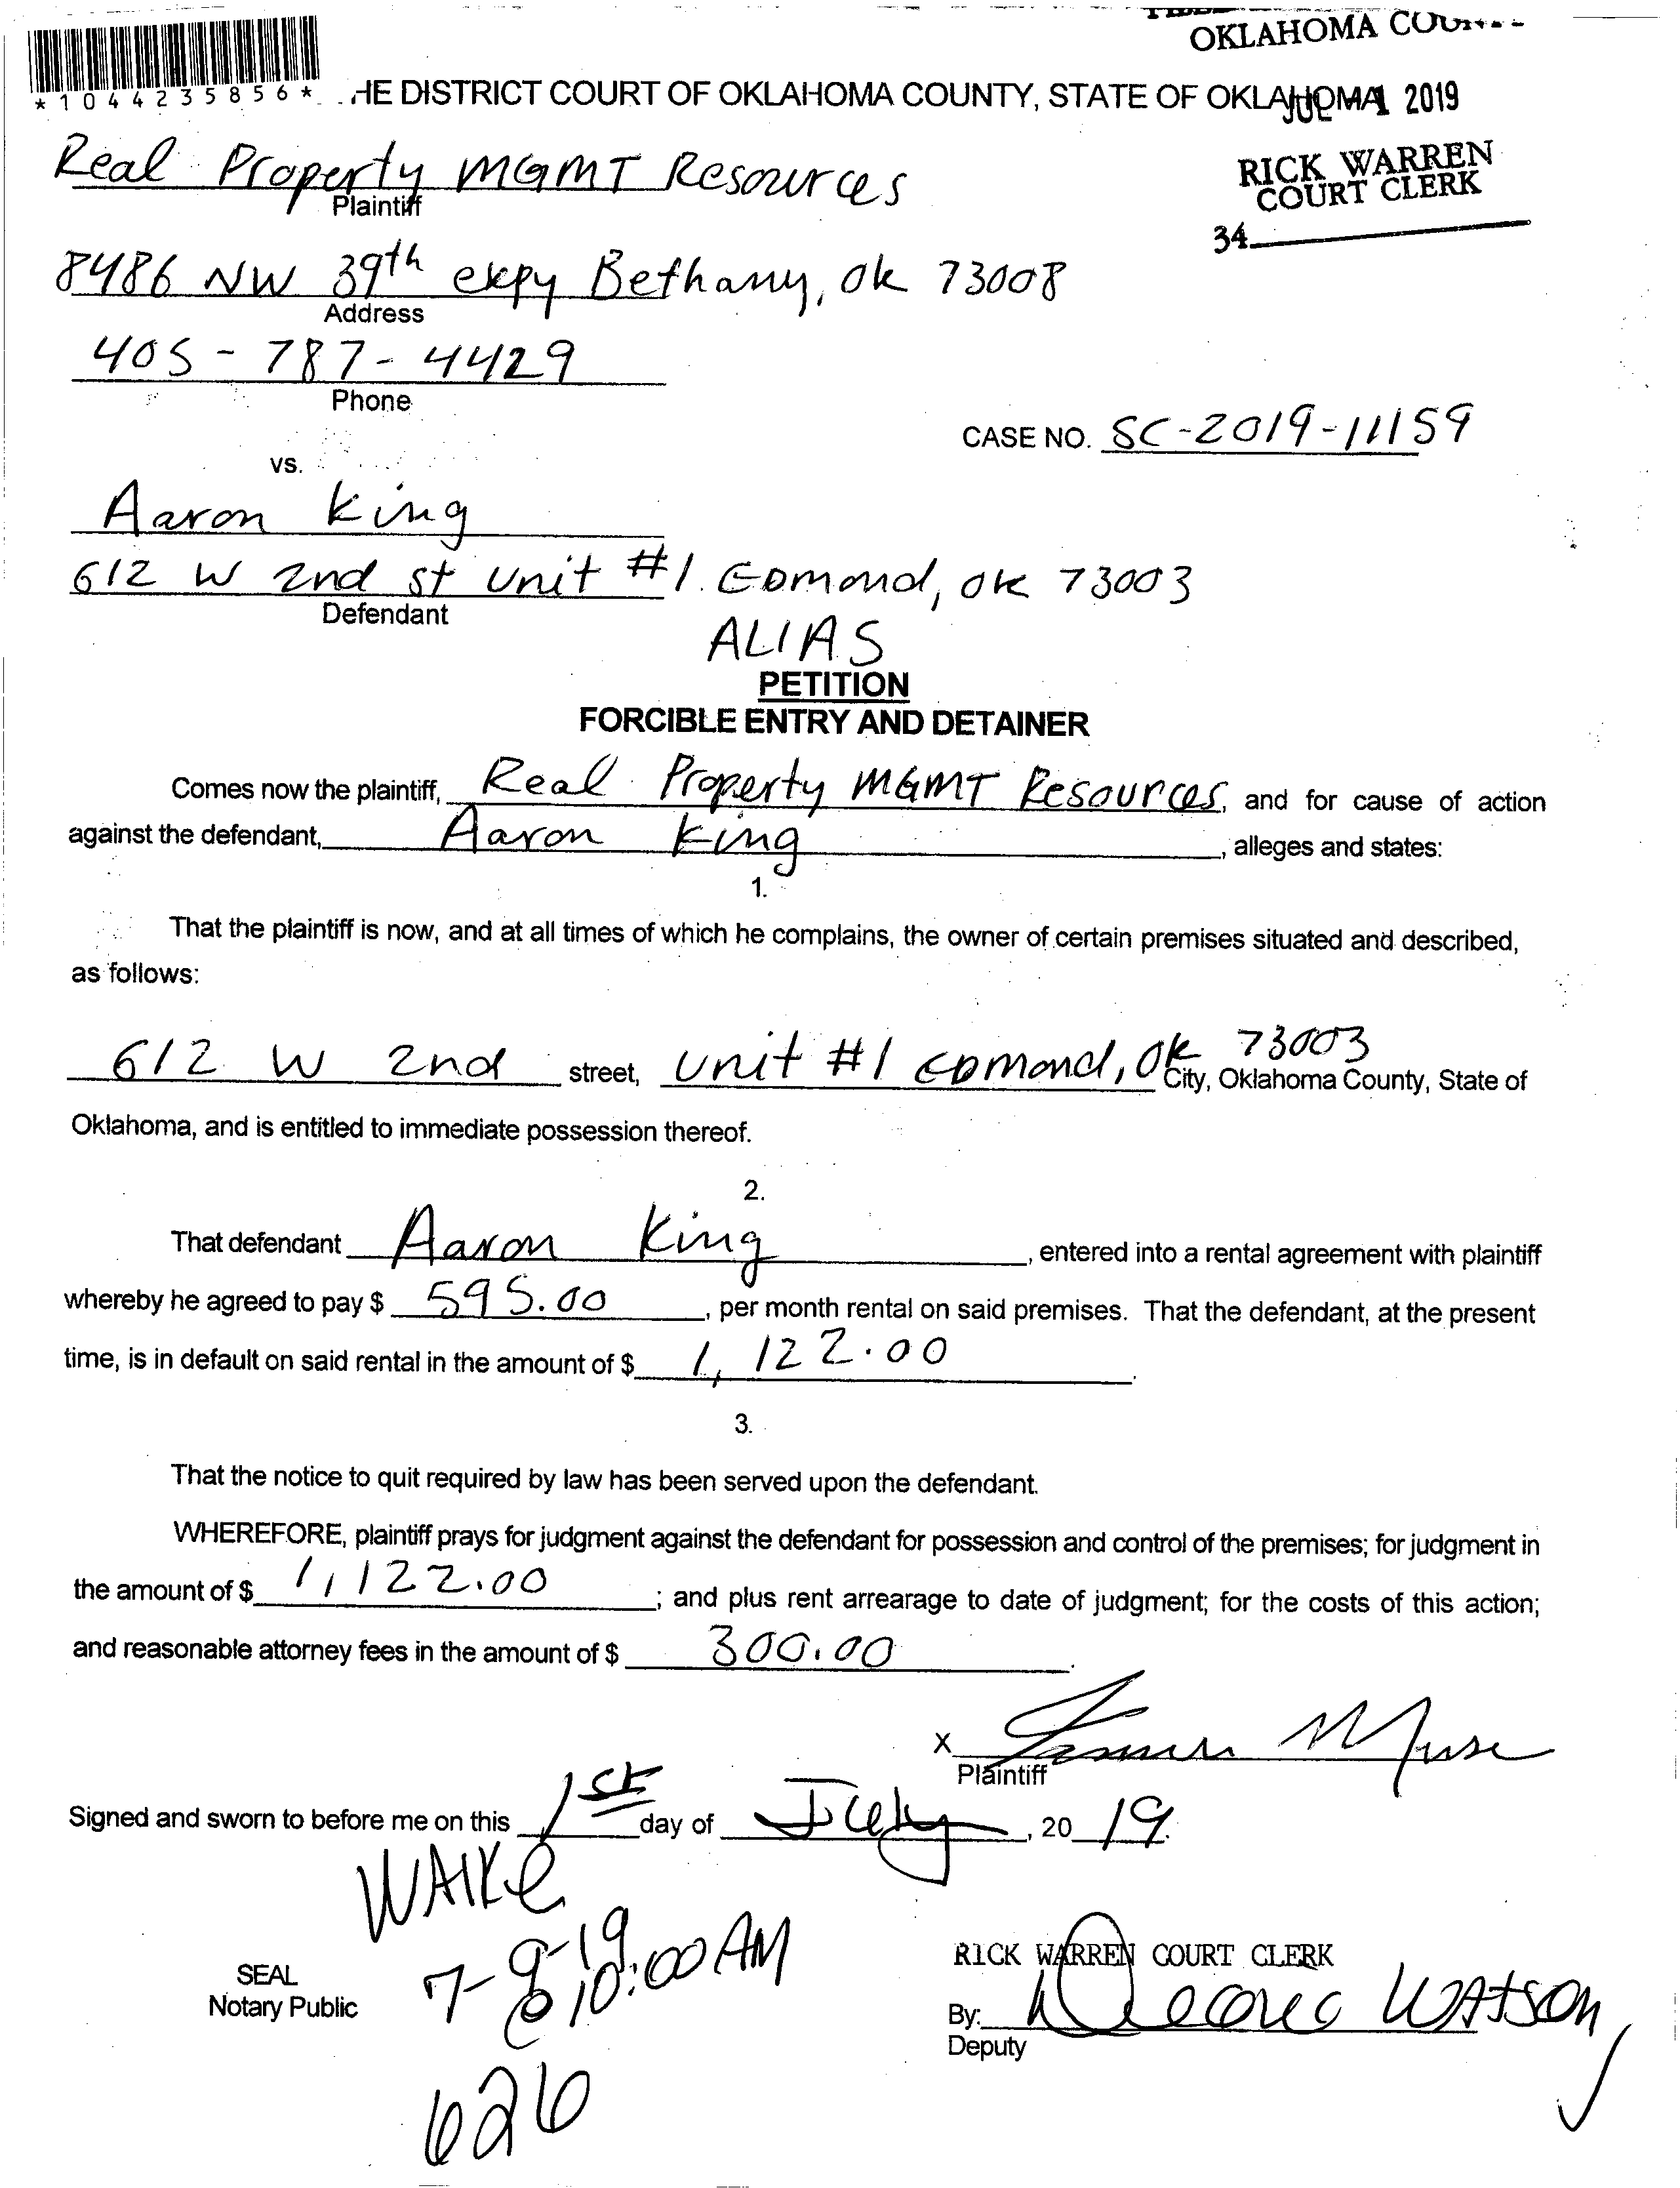 OKLAHOMA
*1044235856* HE DISTRICT COURT OF OKLAHOMA COUNTY, STATE OF OKLAHOMA
JUL 1 2019
Real Property MGMT Resources
Plaintiff
RICK WARREN
COURT CLERK
34
8486 NW 39th expy Bethany, ok 73008
Address
405-787-4429
Phone
CASE NO. SC-2019-11159
vs.
Aaron King
612 W 2nd st Unit #1. Edmond, ok 73003
Defendant
ALIAS
PETITION
FORCIBLE ENTRY AND DETAINER
Comes now the plaintiff, Real Property MGMT Resources, and for cause of action
against the defendant, Aaron King, alleges and states:
1.
That the plaintiff is now, and at all times of which he complains, the owner of certain premises situated and described,
as follows:
612 W 2nd street, Unit #1 Edmond, Ok 73003 City, Oklahoma County, State of
Oklahoma, and is entitled to immediate possession thereof.
2.
That defendant Aaron King, entered into a rental agreement with plaintiff
whereby he agreed to pay $ 595.00, per month rental on said premises. That the defendant, at the present
time, is in default on said rental in the amount of $ 1,122.00.
3.
That the notice to quit required by law has been served upon the defendant.
WHEREFORE, plaintiff prays for judgment against the defendant for possession and control of the premises; for judgment in
the amount of $ 1,122.00; and plus rent arrearage to date of judgment; for the costs of this action;
and reasonable attorney fees in the amount of $ 300.00.
X
Plaintiff
Signed and sworn to before me on this 1st day of July, 20 19.
7-9-19
@ 10:00 AM
SEAL
Notary Public
RICK WARREN COURT CLERK
By: Watson
Deputy
626